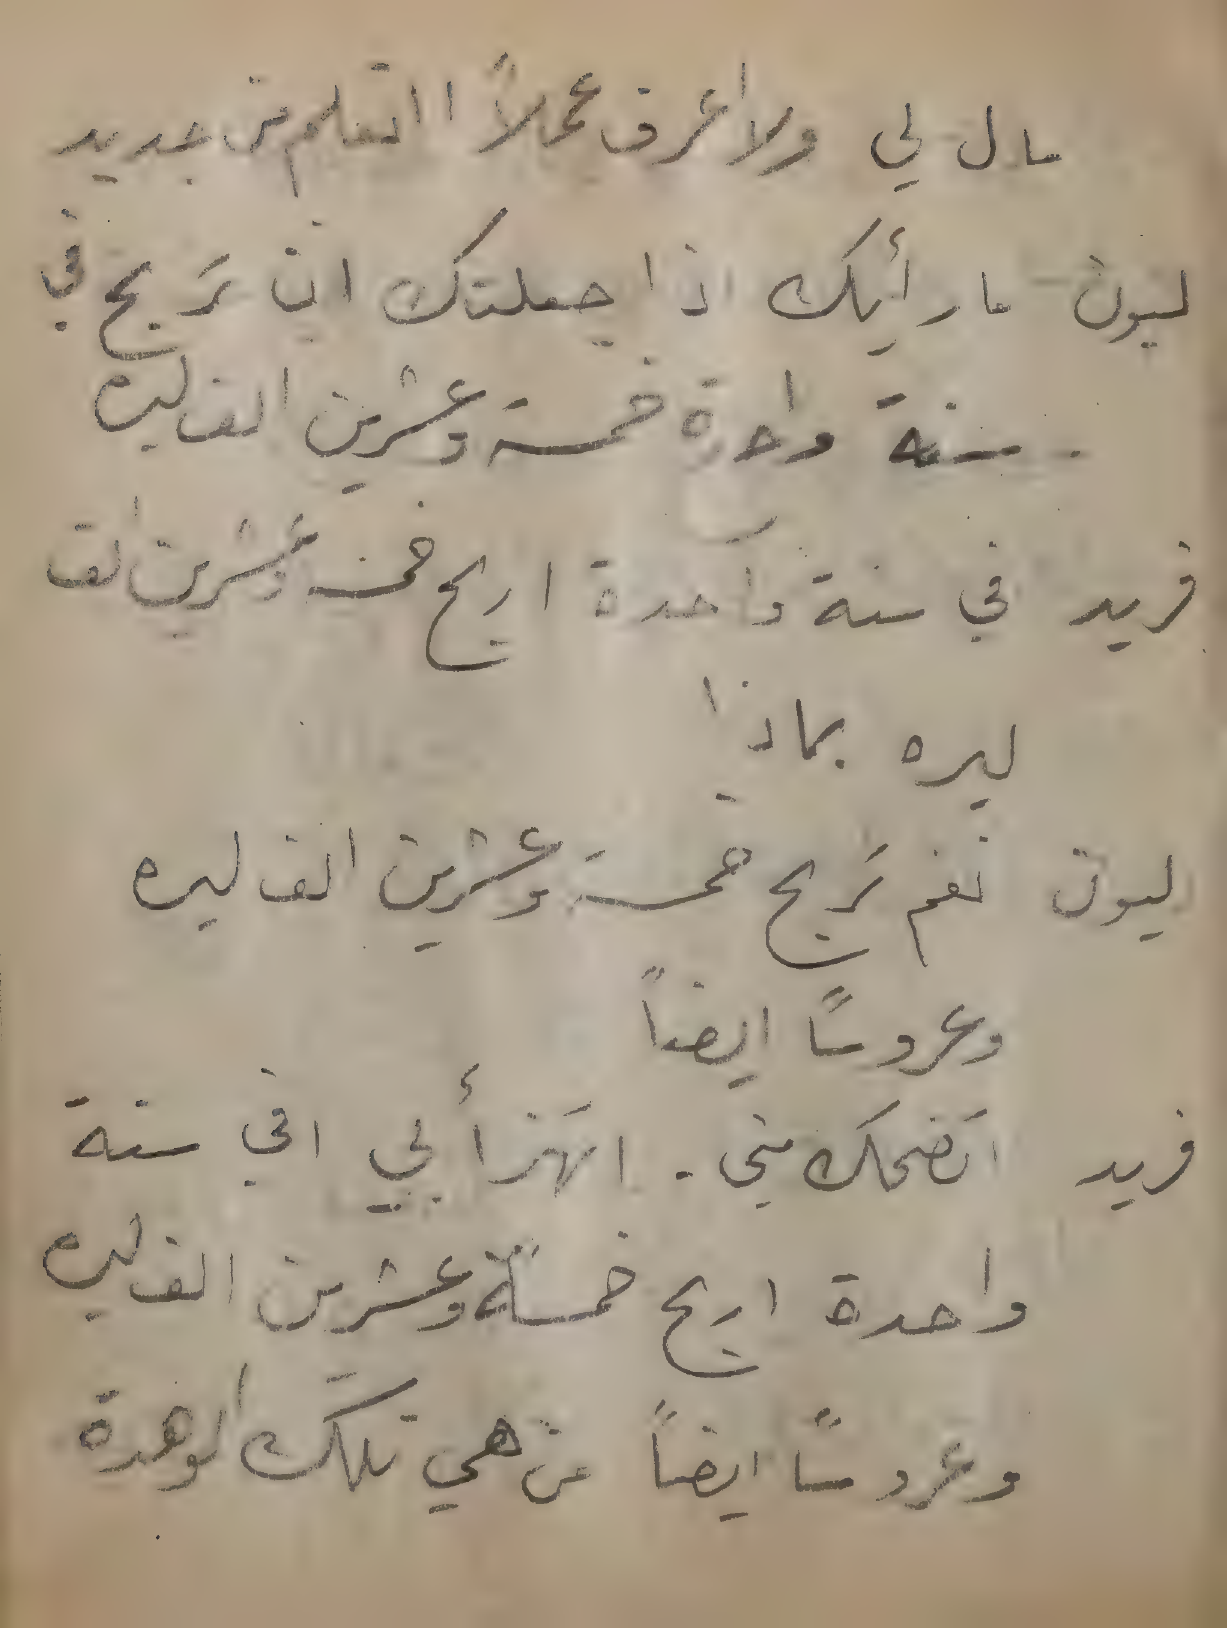 مال لي ولا اعرف عملاً ااتعلم من جديد
ليون ما رأيك اذا جعلتك ان تَربح في
سنة واحدة خمسة وعشرين الف ليره
فريد في سنة واحدة اربح خمسة وعشرين الف
ليره بماذا
ليون نعم تَربح خمسة وعشرين الف ليره
وعروسًا ايضاً
فريد اتَضحك مني . اتهَزأ بي افي سنة
واحدة اربح خمسة وعشرين الف ليره
وعروسًا ايضاً من هي تلكَ الوهدة